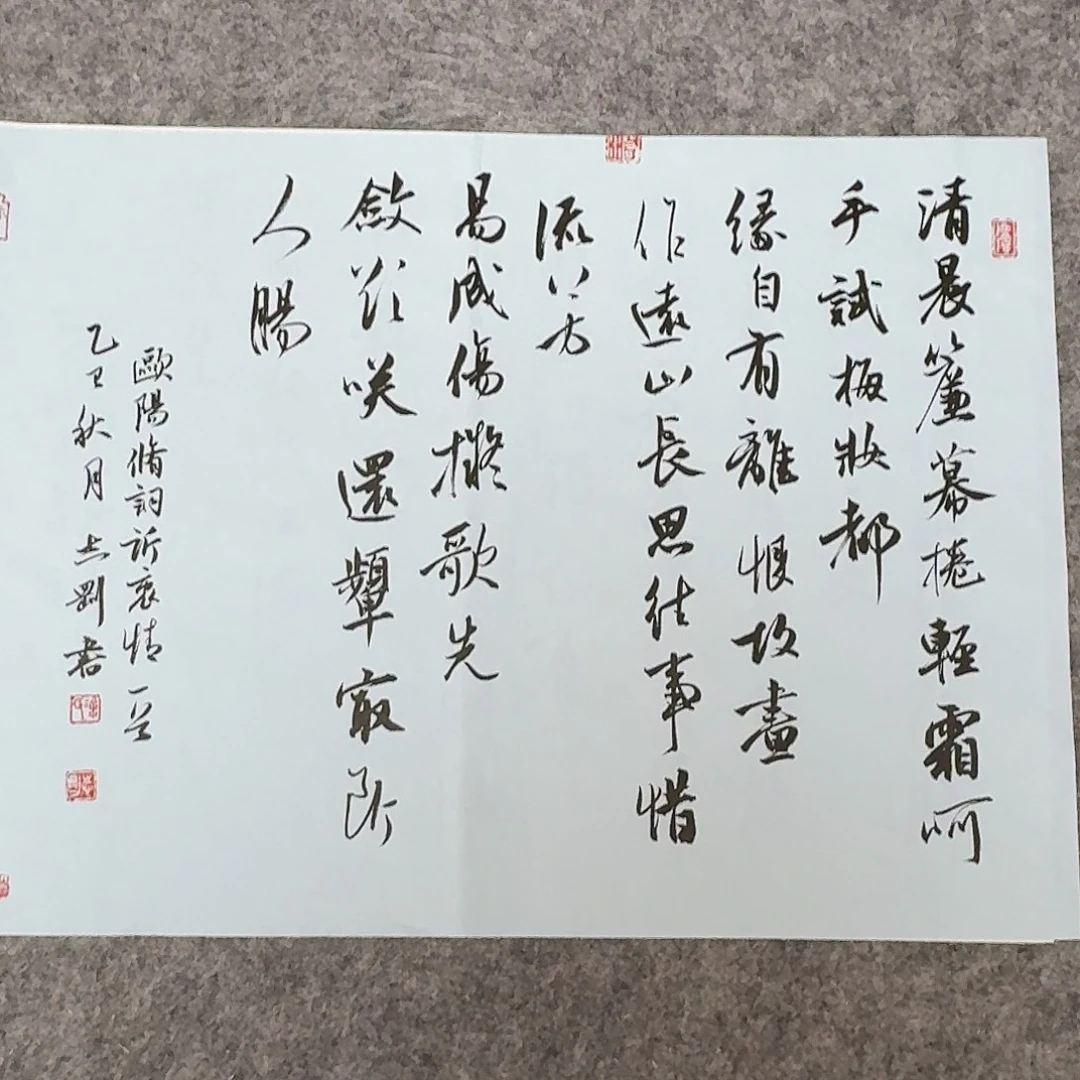 清晨簾幕捲輕霜呵
手試梅妝都
緣自有離恨故畫
作遠山長思往事惜
流芳
易成傷擬歌先
斂欲咲還顰冣断
人腸
歐陽脩詞訴衷情一首
乙巳秋月志剛書